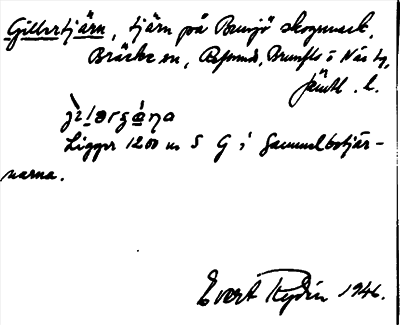 Gillertjärn, tjärn på Bensjö skogsmark,
Bräcke sn, Refsunds, Brunflo o Näs tg,
Jämtl. l.
Ligger 1200 m S G i Gammelbotjär-
narna.
Evert Rydén 1946.